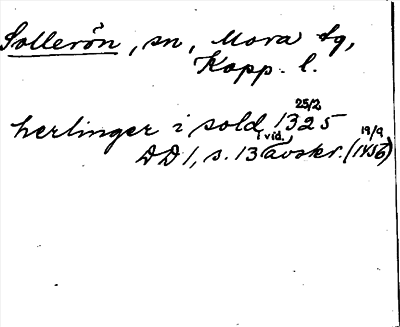 Sollerön, sn, Mora tg,
Kopp. l.
herlinger i sold 1325 25/2
DD 1, s. 13 (vid. avskr. (1456) 19/9